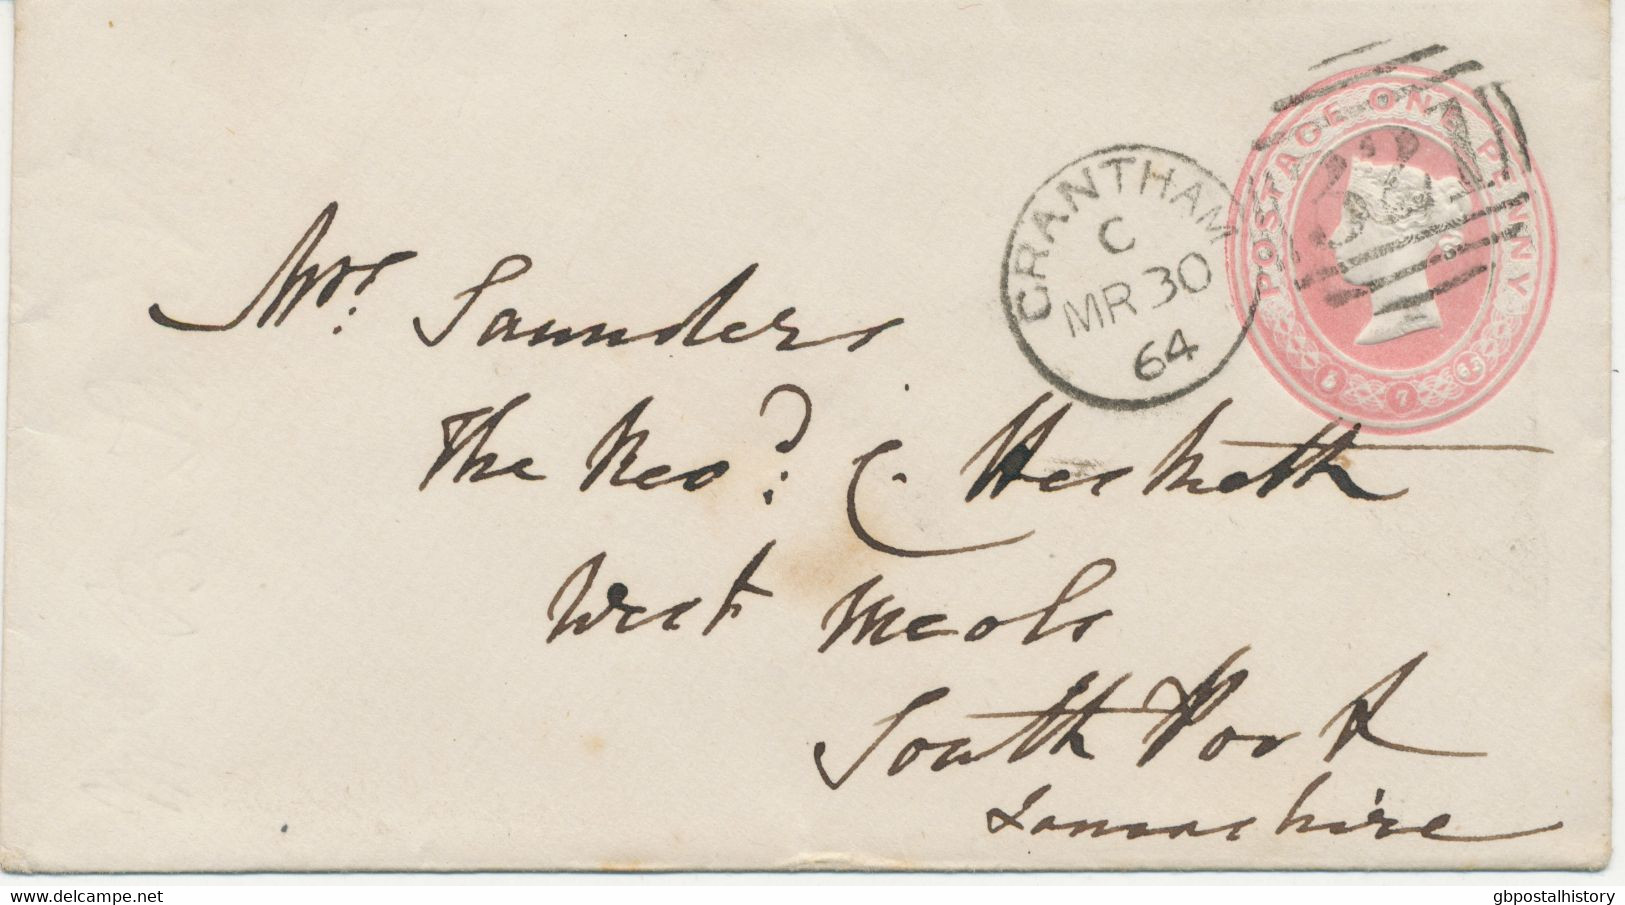 Mrs. Saunders
The Revd. C. Hesketh
West Meols
South Port
Lancashire
GRANTHAM
C
MR 30
64
POSTAGE ONE PENNY
6 7 63
www.delcampe.net
gbpostalhistory